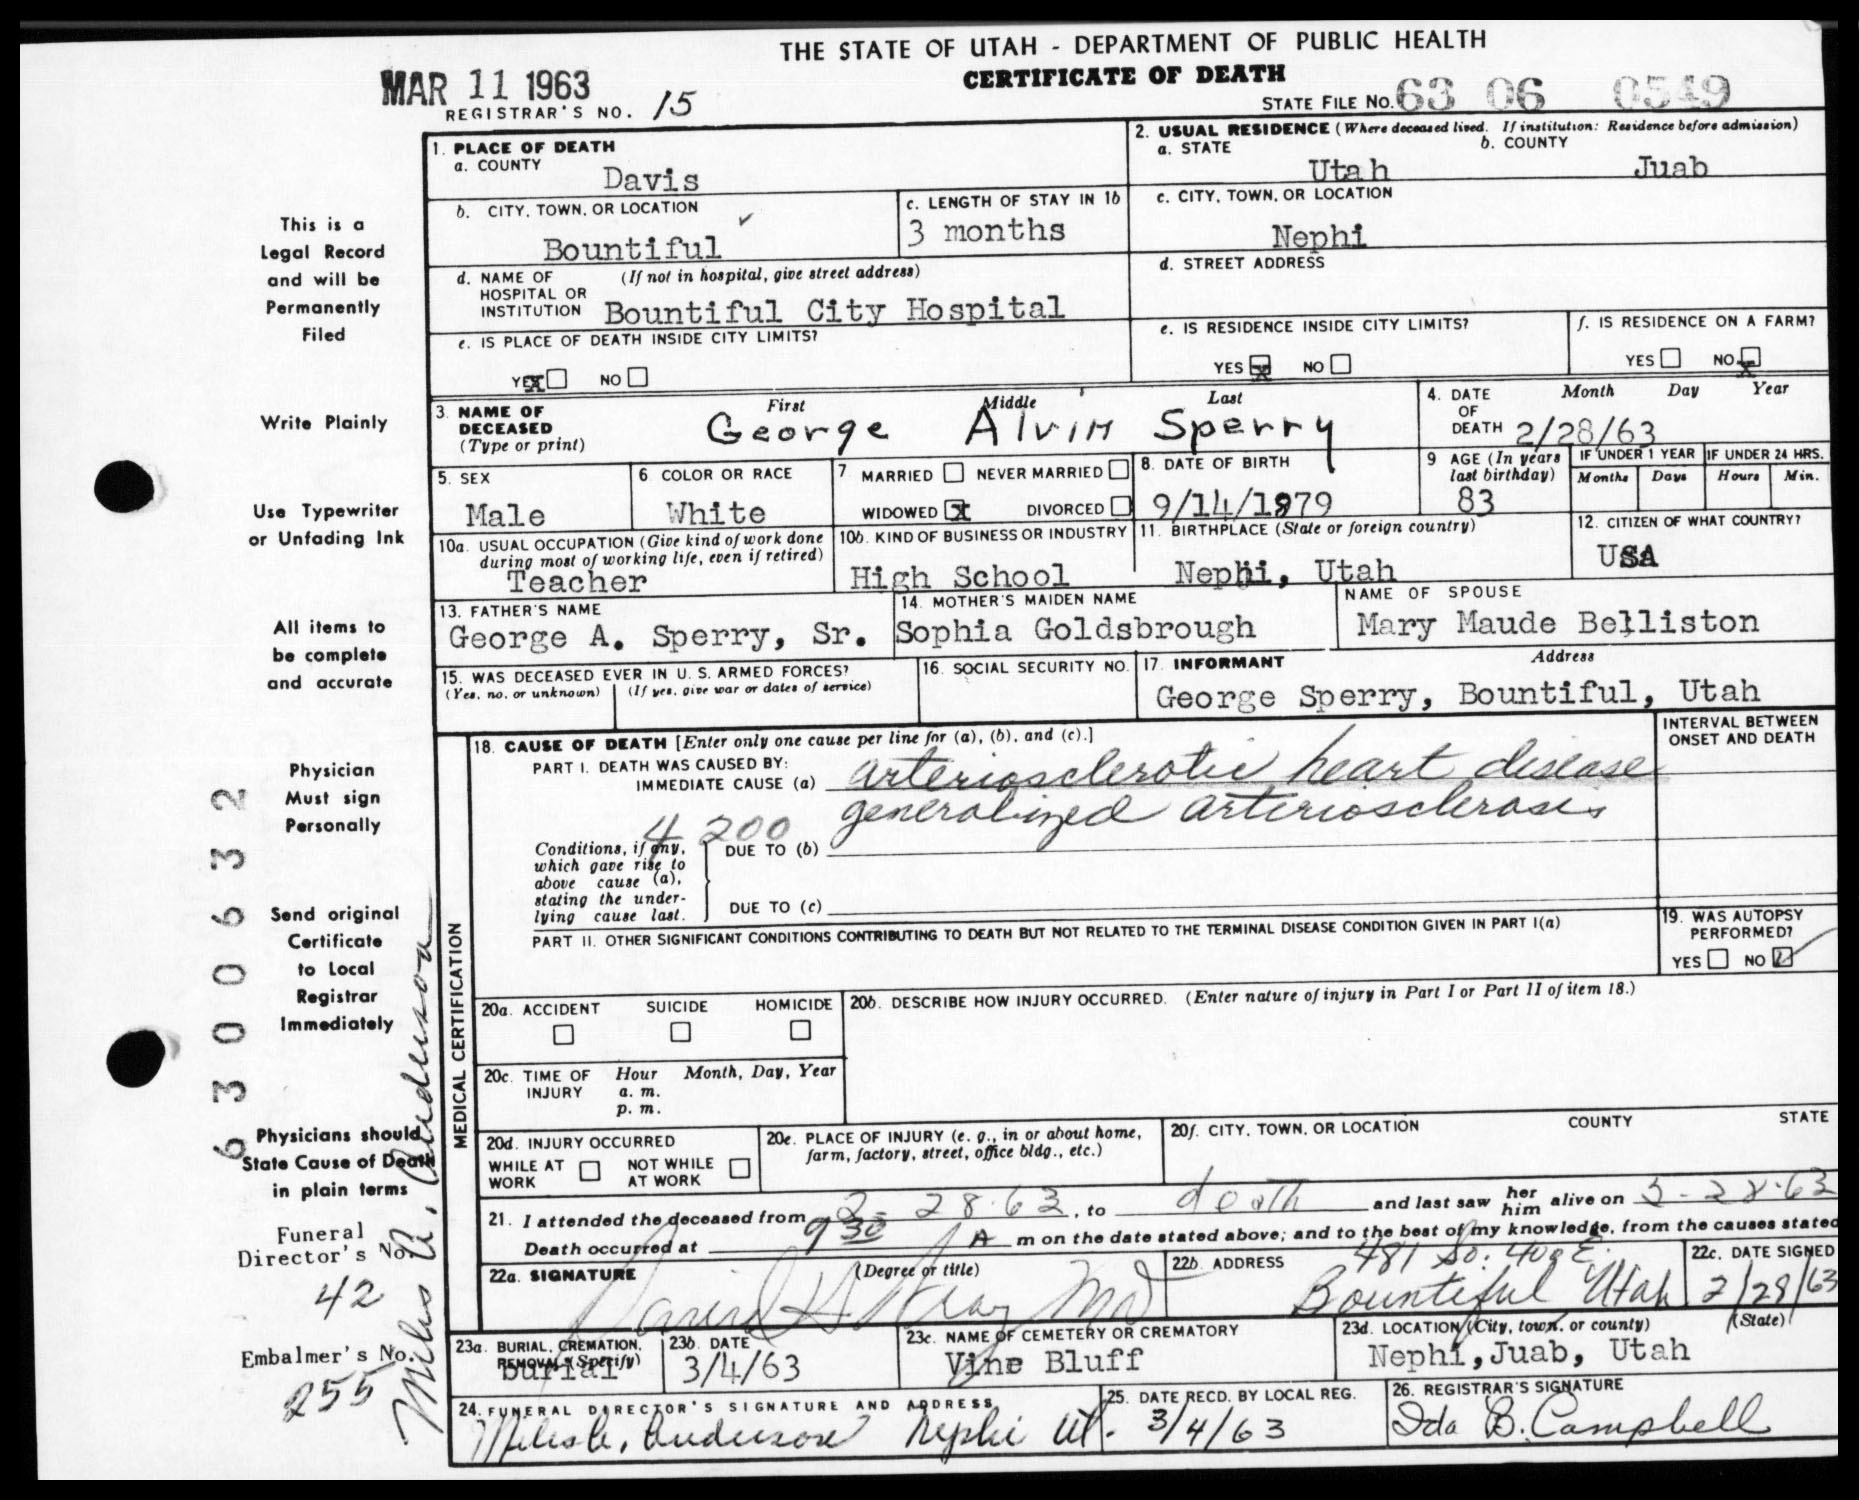 THE STATE OF UTAH - DEPARTMENT OF PUBLIC HEALTH
CERTIFICATE OF DEATH
MAR 11 1963
REGISTRAR'S NO. 15
STATE FILE NO. 63 06 0549
1. PLACE OF DEATH
a. COUNTY
Davis
2. USUAL RESIDENCE (Where deceased lived. If institution: Residence before admission)
a. STATE Utah
b. COUNTY Juab
b. CITY, TOWN, OR LOCATION
Bountiful
c. LENGTH OF STAY IN 1b
3 months
c. CITY, TOWN, OR LOCATION
Nephi
d. NAME OF HOSPITAL OR INSTITUTION (If not in hospital, give street address)
Bountiful City Hospital
d. STREET ADDRESS
e. IS PLACE OF DEATH INSIDE CITY LIMITS?
YES X NO
e. IS RESIDENCE INSIDE CITY LIMITS?
YES X NO
f. IS RESIDENCE ON A FARM?
YES NO X
3. NAME OF DECEASED (Type or print)
First Middle Last
George Alvin Sperry
4. DATE OF DEATH Month Day Year
2/28/63
5. SEX
Male
6 COLOR OR RACE
White
7 MARRIED NEVER MARRIED
WIDOWED X DIVORCED
8. DATE OF BIRTH
9/14/1879
9 AGE (In years last birthday)
83
IF UNDER 1 YEAR
Months Days
IF UNDER 24 HRS.
Hours Min.
10a. USUAL OCCUPATION (Give kind of work done during most of working life, even if retired)
Teacher
10b. KIND OF BUSINESS OR INDUSTRY
High School
11. BIRTHPLACE (State or foreign country)
Nephi, Utah
12. CITIZEN OF WHAT COUNTRY?
USA
13. FATHER'S NAME
George A. Sperry, Sr.
14. MOTHER'S MAIDEN NAME
Sophia Goldsbrough
NAME OF SPOUSE
Mary Maude Belliston
15. WAS DECEASED EVER IN U. S. ARMED FORCES?
(Yes, no, or unknown) (If yes, give war or dates of service)
16. SOCIAL SECURITY NO.
17. INFORMANT Address
George Sperry, Bountiful, Utah
18. CAUSE OF DEATH [Enter only one cause per line for (a), (b), and (c).]
INTERVAL BETWEEN ONSET AND DEATH
PART I. DEATH WAS CAUSED BY:
IMMEDIATE CAUSE (a) arteriosclerotic heart disease
generalized arteriosclerosis
4 200
Conditions, if any, which gave rise to above cause (a), stating the underlying cause last.
DUE TO (b)
DUE TO (c)
PART II. OTHER SIGNIFICANT CONDITIONS CONTRIBUTING TO DEATH BUT NOT RELATED TO THE TERMINAL DISEASE CONDITION GIVEN IN PART I(a)
19. WAS AUTOPSY PERFORMED?
YES NO
MEDICAL CERTIFICATION
20a. ACCIDENT SUICIDE HOMICIDE
20b. DESCRIBE HOW INJURY OCCURRED. (Enter nature of injury in Part I or Part II of item 18.)
20c. TIME OF INJURY Hour Month, Day, Year
a. m.
p. m.
20d. INJURY OCCURRED
WHILE AT WORK NOT WHILE AT WORK
20e. PLACE OF INJURY (e. g., in or about home, farm, factory, street, office bldg., etc.)
20f. CITY, TOWN, OR LOCATION COUNTY STATE
21. I attended the deceased from 2-28-63, to death and last saw her him alive on 28-63
Death occurred at 9 30 A m on the date stated above; and to the best of my knowledge, from the causes stated
22a. SIGNATURE (Degree or title)
MD
22b. ADDRESS
481 So. 400 E.
Bountiful Utah
22c. DATE SIGNED
2/28/63
23a. BURIAL, CREMATION, REMOVAL (Specify)
burial
23b. DATE
3/4/63
23c. NAME OF CEMETERY OR CREMATORY
Vine Bluff
23d. LOCATION (City, town, or county) (State)
Nephi, Juab, Utah
24. FUNERAL DIRECTOR'S SIGNATURE AND ADDRESS
Miles A. Anderson Nephi Ut.
25. DATE RECD. BY LOCAL REG.
3/4/63
26. REGISTRAR'S SIGNATURE
Ida B. Campbell
This is a
Legal Record
and will be
Permanently
Filed
Write Plainly
Use Typewriter
or Unfading Ink
All items to
be complete
and accurate
Physician
Must sign
Personally
Send original
Certificate
to Local
Registrar
Immediately
Physicians should
State Cause of Death
in plain terms
Funeral
Director's No.
42
Embalmer's No.
255
6300632
Miles A. Anderson